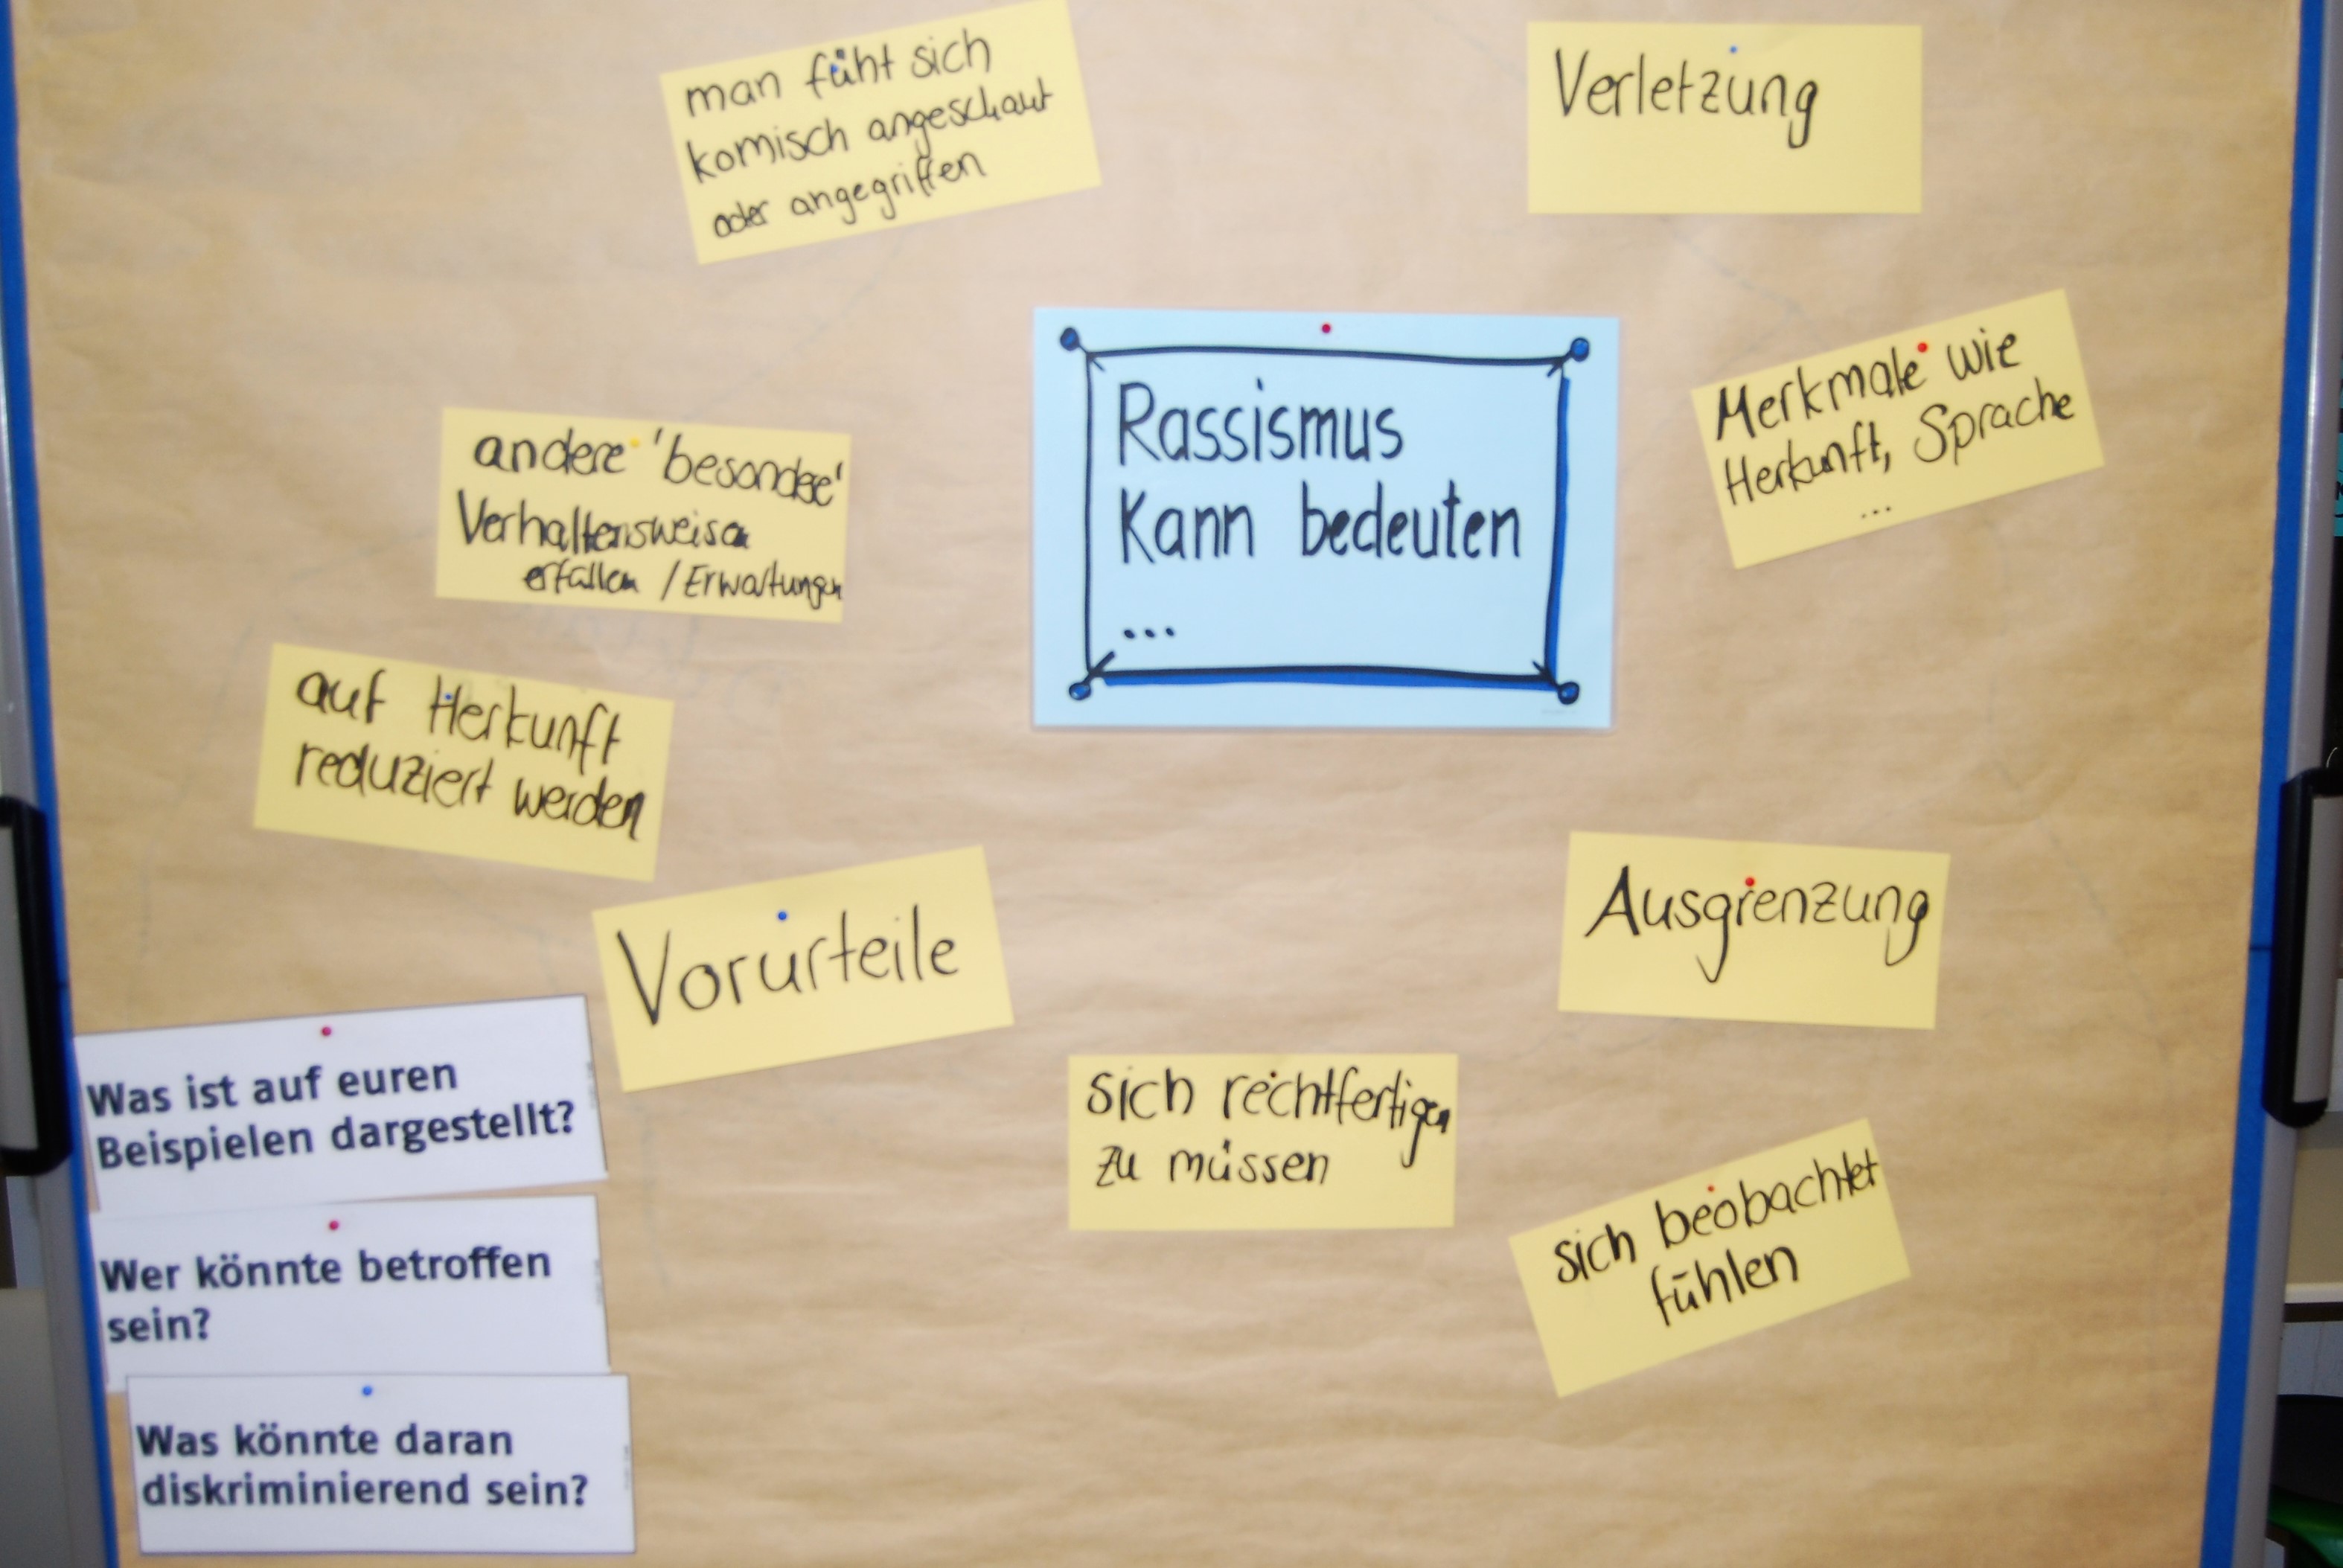 man füht sich
komisch angeschaut
oder angegriffen
Verletzung
Rassismus
Kann bedeuten
...
Merkmale wie
Herkunft, Sprache
...
andere 'besondere'
Verhaltensweisen
erfüllen / Erwartungen
auf Herkunft
reduziert werden
Vorurteile
Ausgrenzung
sich rechtfertigen
zu müssen
sich beobachtet
fühlen
Was ist auf euren
Beispielen dargestellt?
Wer könnte betroffen
sein?
Was könnte daran
diskriminierend sein?